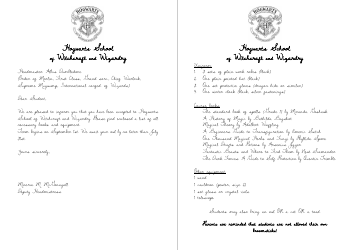 HOGWARTS
Hogwarts School
of Witchcraft and Wizardry
Headmaster: Albus Dumbledore
Order of Merlin, First Class, Grand Sorc., Chf. Warlock
Supreme Mugwump, International Confed. of Wizards
Dear Student,
We are pleased to inform you that you have been accepted to Hogwarts
School of Witchcraft and Wizardry. Please find enclosed a list of all
necessary books and equipment.
Term begins on September 1st. We await your owl by no later than July
31st.
Yours sincerely,
Minerva M. McGonagall
Deputy Headmistress
HOGWARTS
Hogwarts School
of Witchcraft and Wizardry
Uniform
1. 3 sets of plain work robes (black)
2. One plain pointed hat (black)
3. One set protective gloves (dragon hide or similar)
4. One winter cloak (black, silver fastenings)
Course books
The standard book of spells (Grade 1) by Miranda Goshawk
A History of Magic by Bathilda Bagshot
Magical Theory by Adalbert Waffling
A Beginners Guide to Transfiguration by Emeric Switch
One Thousand Magical Herbs and Fungi by Phyllida Spore
Magical Drafts and Potions by Arsenius Jigger
Fantastic Beasts and Where to Find Them by Newt Scamander
The Dark Forces: A Guide to Self Protection by Quentin Trimble
Other equipment
1 wand
1 cauldron (pewter, size 2)
1 set glass or crystal vials
1 telescope
Students may also bring an owl OR a cat OR a toad
Parents are reminded that students are not allowed their own
broomsticks!